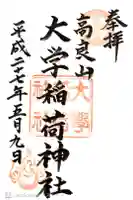 奉拝
高良山
大学稲荷神社
平成二十七年五月九日